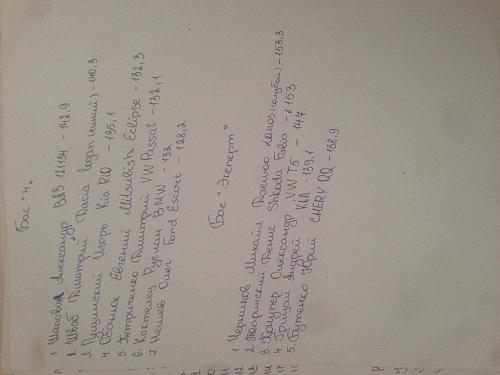 Бас "4"
1 Шаповал Александр ВАЗ 12134 - 142,9
2. Швец Дмитрий Dacia Logan (синий) - 140,3
3. Пушинский Игорь Kia Rio - 135,1
4. Обанюк Евгений Mitsubishi Eclipse - 132,3
5 Петриченко Дмитрий VW Passat - 132,1
6. Коктелец Руслан BMW - 132
7 Нешев Олег Ford Escort - 128,2
Бас "Эксперт"
1 Черников Михаил Daewoo Lanos (голубой) - 153,3
2. Тваринский Денис Shkoda Fabia - 153
3. Александр VW T5 - 147
4. Грицай Андрей KIA - 139,1
5. Бутенко Юрий CHERY QQ - 138,9